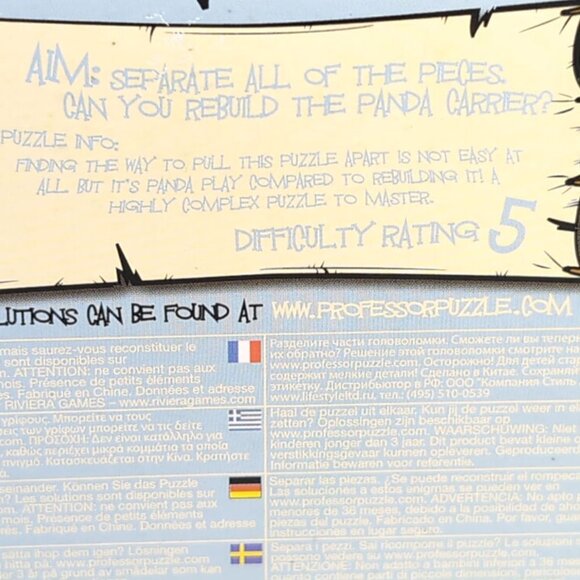 AIM: SEPARATE ALL OF THE PIECES.
CAN YOU REBUILD THE PANDA CARRIER?
PUZZLE INFO:
FINDING THE WAY TO PULL THIS PUZZLE APART IS NOT EASY AT
ALL BUT IT'S PANDA PLAY COMPARED TO REBUILDING IT! A
HIGHLY COMPLEX PUZZLE TO MASTER.
DIFFICULTY RATING 5
LUTIONS CAN BE FOUND AT WWW.PROFESSORPUZZLE.COM
mais saurez-vous reconstituer le
sont disponibles sur
ATTENTION: ne convient pas aux
mois. Présence de petits éléments
. Fabriqué en Chine. Données et adresse
RIVIERA GAMES - www.rivieragames.com
γρίφους. Μπορείτε να τους
σεις των γρίφων μπορείτε να τις δείτε
.com. ΠΡΟΣΟΧΗ: Δεν είναι κατάλληλο για
καθώς περιέχει μικρά κομμάτια τα οποία
πνιγμό. Κατασκευάζεται στην Κίνα. Κρατήστε
senander. Können Sie das Puzzle
? Les solutions sont disponibles sur
.com. ATTENTION: ne convient pas aux
mois. Présence de petits éléments
. Fabriqué en Chine. Données et adresse
sätta ihop dem igen? Lösningen
hitta på: www.professorpuzzle.com.
r 3 år på grund av smådelar som kan
Разделите части головоломки. Сможете ли вы теперь
их обратно? Решение этой головоломки смотрите н
www.professorpuzzle.com. Осторожно! Для детей ста
содержит мелкие детали! Сделано в Китае. Сохраняй
этикетку. Дистрибьютор в РФ: ООО "Компания Стиль
www.lifestyleltd.ru, тел.: (495) 510-0539
Haal de puzzel uit elkaar. Kun jij de puzzel weer in e
zetten? Oplossingen zijn beschikbaar op
www.professorpuzzle.com. WAARSCHUWING: Niet
kinderen jonger dan 3 jaar. Dit product bevat kleine o
verstikkingsgevaar kunnen opleveren. Geproduceerd
Informatie bewaren voor referentie.
Separar las piezas. ¿Se puede reconstruir el rompecab
Las soluciones a estos enigmas se pueden ver en
www.professorpuzzle.com. ADVERTENCIA: No apto p
menores de 36 meses, debido a la posibilidad de aho
piezas del puzzle. Fabricado en China. Por favor, guar
instrucciones en lugar seguro.
Separa i pezzi. Sai ricomporre il puzzle? Le soluzioni s
possono vedere su www.professorpuzzle.com.
ATTENZIONE: Non adatto a bambini inferiori a 36 mes